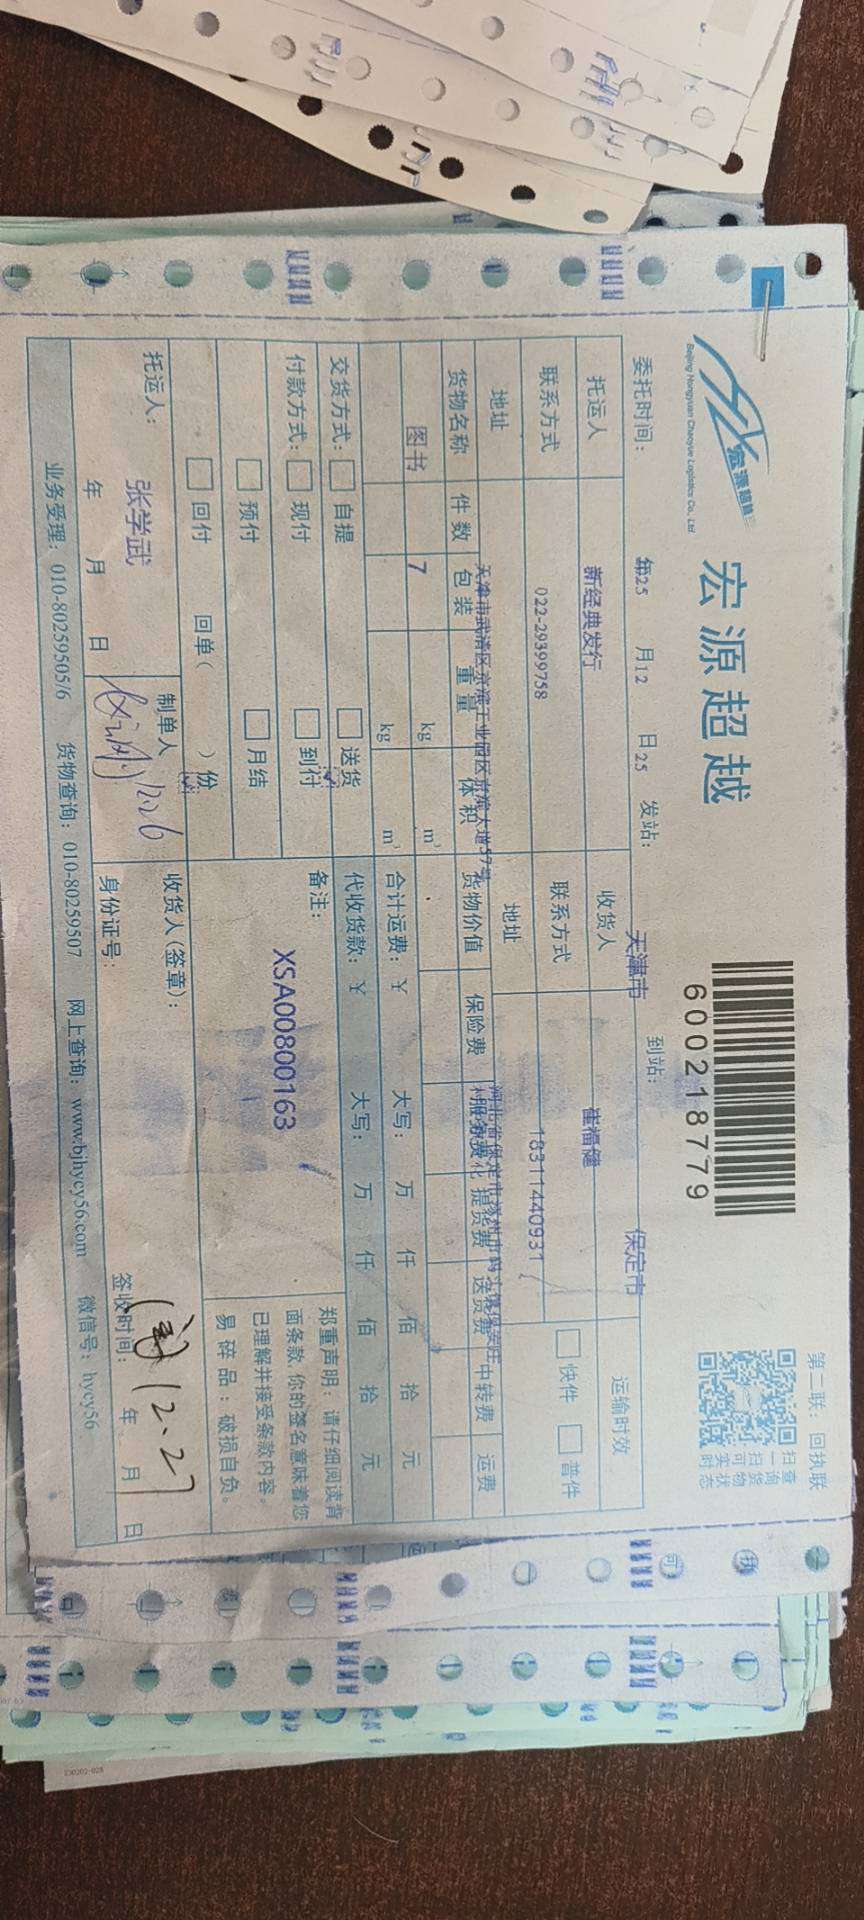 宏源超越
Beijing Hongyuan Chaoyue Logistics Co., Ltd
宏源超越
600218779
扫一扫可实时
查询货物状态
第二联：回执联
委托时间： 年25 月12 日25 发站： 天津市 到站： 保定市
托运人 新经典发行 收货人 崔福健 运输时效
联系方式 022-29399758 联系方式 18311440931 快件 普件
地址 天津市武清区京滨工业园区京滨大道57号 地址 河北省保定市涿州市
货物名称 件数 包装 重量 体积 货物价值 保险费 提货费 送货费 中转费 运费
图书 7 kg m³
kg m³
合计运费：￥ 大写： 万 仟 佰 拾 元
交货方式： 自提 送货
代收货款：￥ 大写： 万 仟 佰 拾 元
付款方式： 现付 到付
预付 月结
回付 回单（ ）份
备注：
XSA00800163
郑重声明：请仔细阅读背
面条款，你的签名意味着您
已理解并接受条款内容。
易碎品：破损自负。
托运人： 张学武
年 月 日
制单人
12.26
收货人(签章)：
身份证号：
签收时间： 年 月 日
12.27
业务受理：010-80259505/6 货物查询：010-80259507 网上查询：www.bjhycy56.com 微信号：hycy56